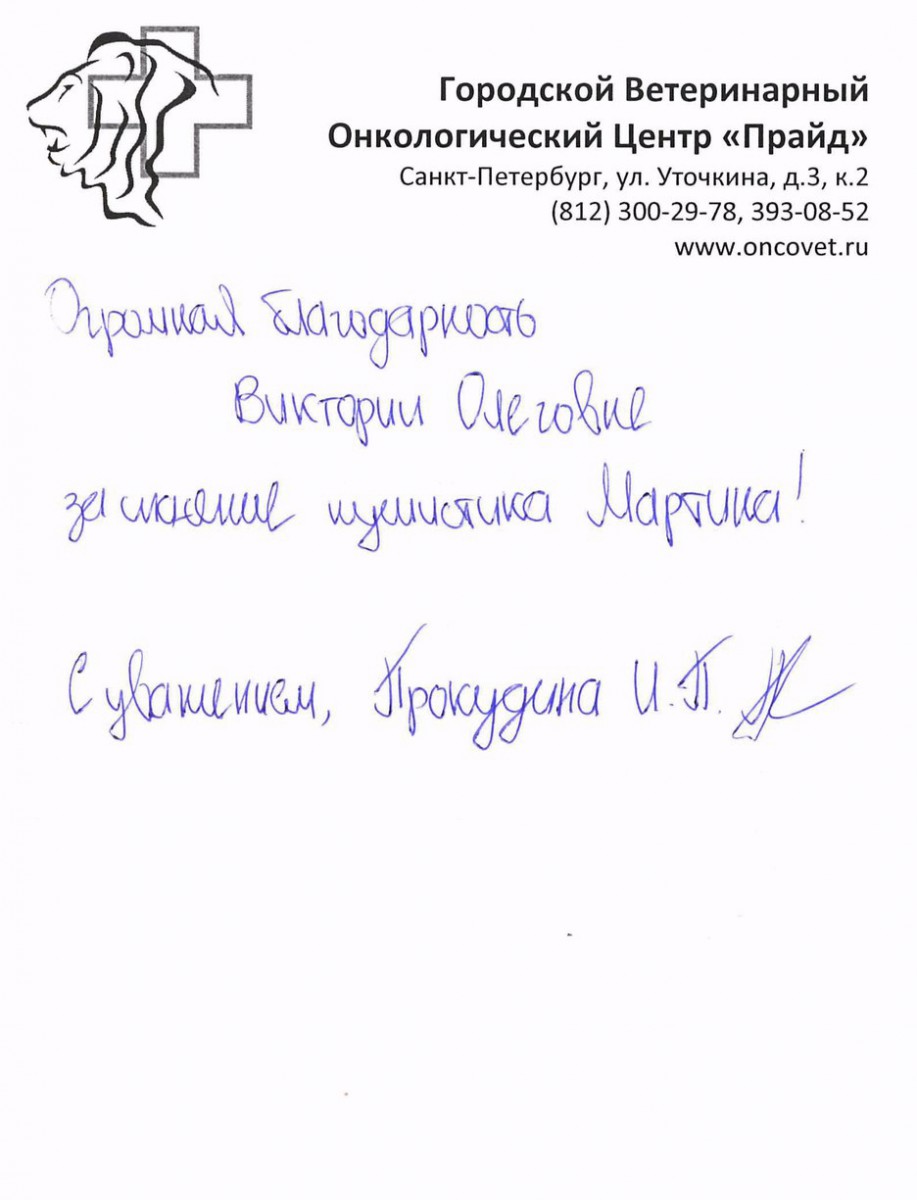 Городской Ветеринарный
Онкологический Центр «Прайд»
Санкт-Петербург, ул. Уточкина, д.3, к.2
(812) 300-29-78, 393-08-52
www.oncovet.ru
Огромная благодарность
Виктории Олеговне
за пушистика Мартина!
С уважением, Прокудина И.П.